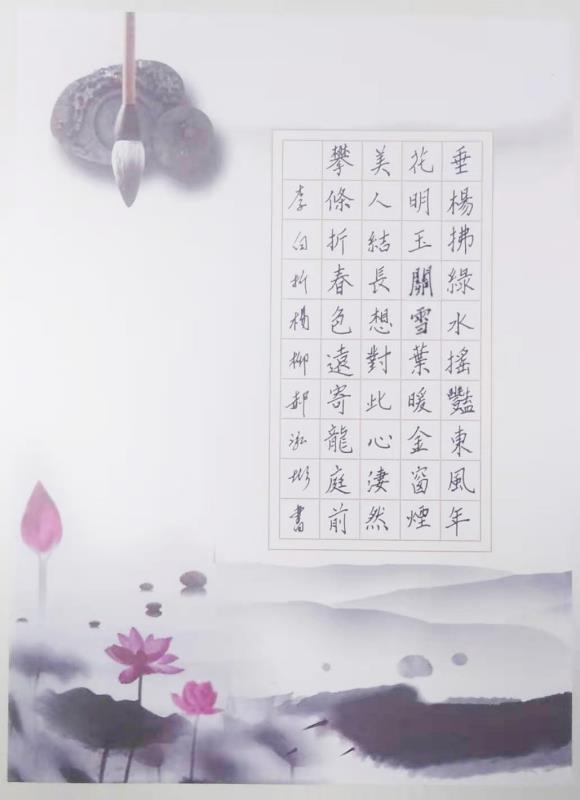 垂楊拂綠水搖豔東風年
花明玉關雪葉暖金窗煙
美人結長想對此心淒然
攀條折春色遠寄龍庭前
李白折楊柳郝泓書